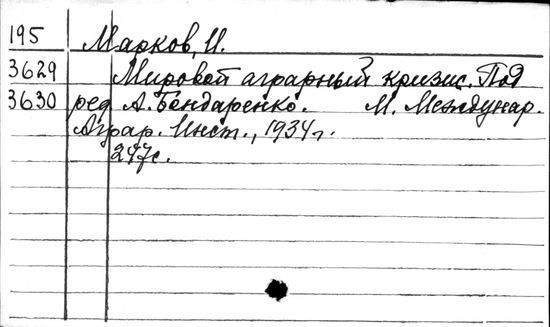 195 Марков, И.
3629 Мировой аграрный кризис. Под
3630 ред А. Бондаренко. М. Междунар.
Аграр. Инст., 1934 г.
247 с.